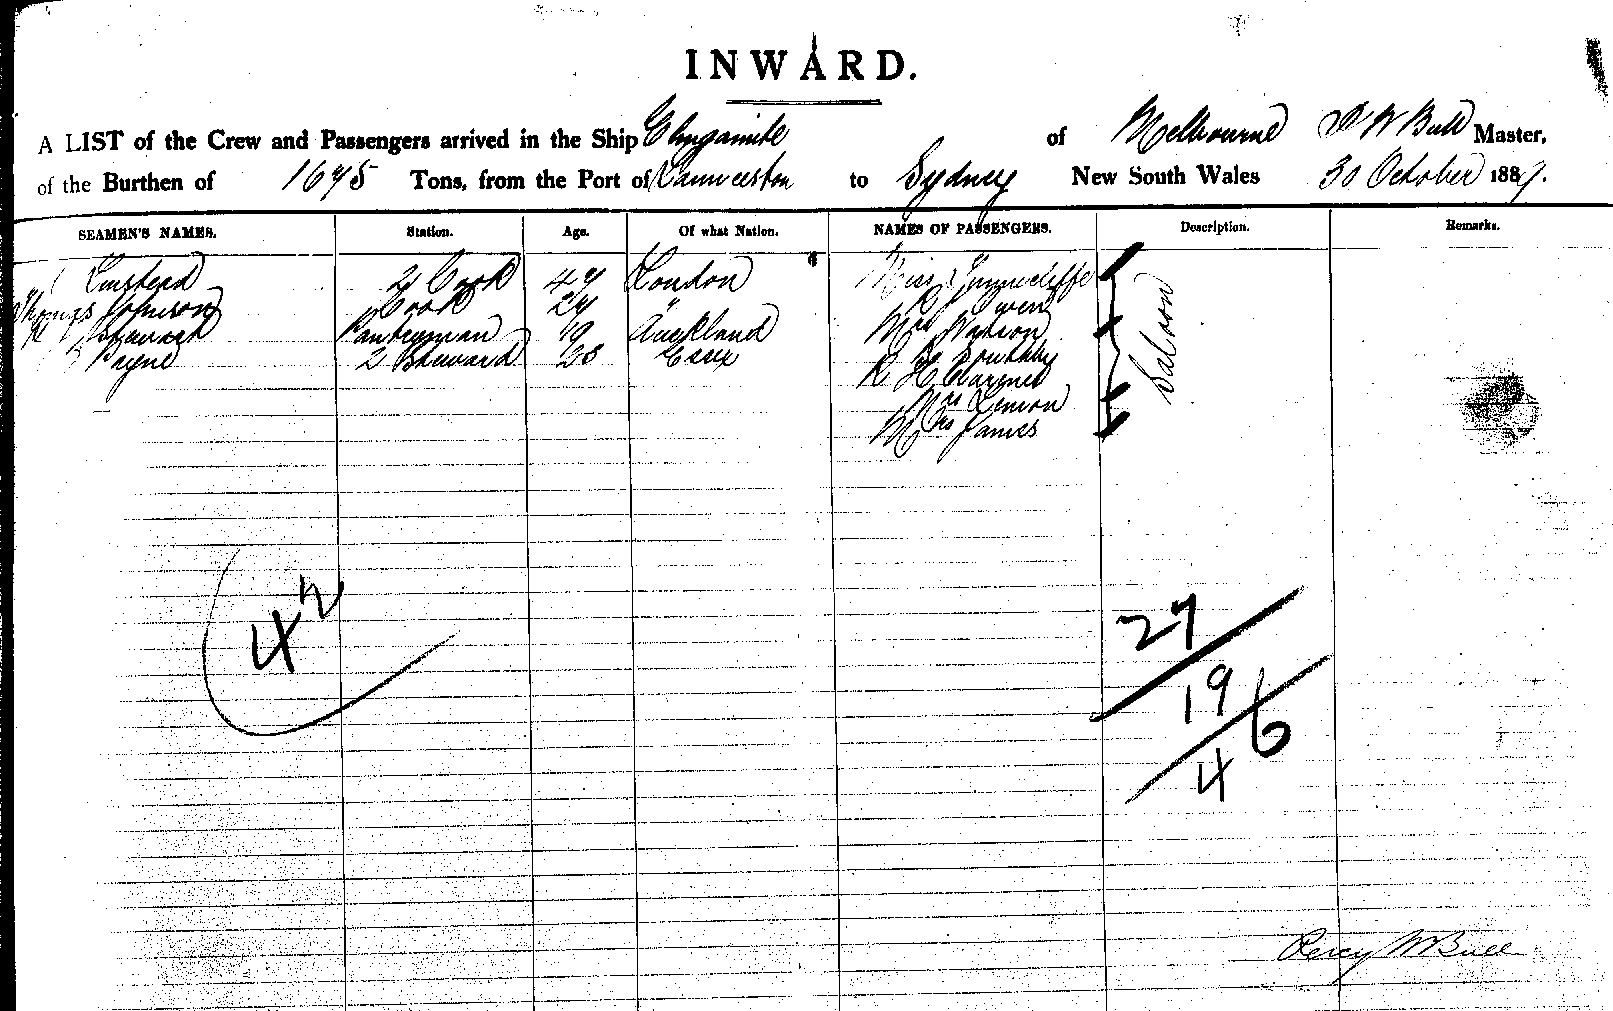 INWARD.
A LIST of the Crew and Passengers arrived in the Ship Elingamite of Melbourne P W Bull Master,
of the Burthen of 1675 Tons, from the Port of Launceston to Sydney New South Wales 30 October 1887.
SEAMEN'S NAMES. Station. Age. Of what Nation. NAMES OF PASSENGERS. Description. Remarks.
2 Cook 47 London Miss
Thomas Johnson Cook 24 " Owen Saloon
Pantryman 19 Auckland Mrs Watson
Payne 2 Steward Essex
R H
Mrs Limon
Mrs James
42
27
19 6
4
Percy W Bull